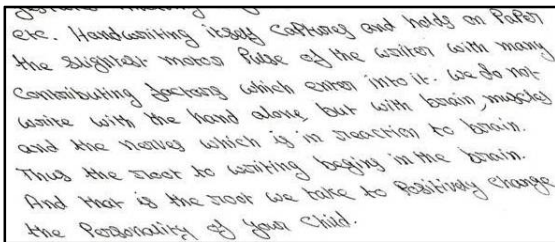 etc. Handwriting itself captures and holds on Paper
the slightest motor Pulse of the writer with many
Contributing factors which enter into it. We do not
write with the hand alone, but with brain, muscles
and the nerves which is in reaction to brain.
Thus the root to writing begins in the brain.
And that is the root we take to Positively change
the Personality of your child.